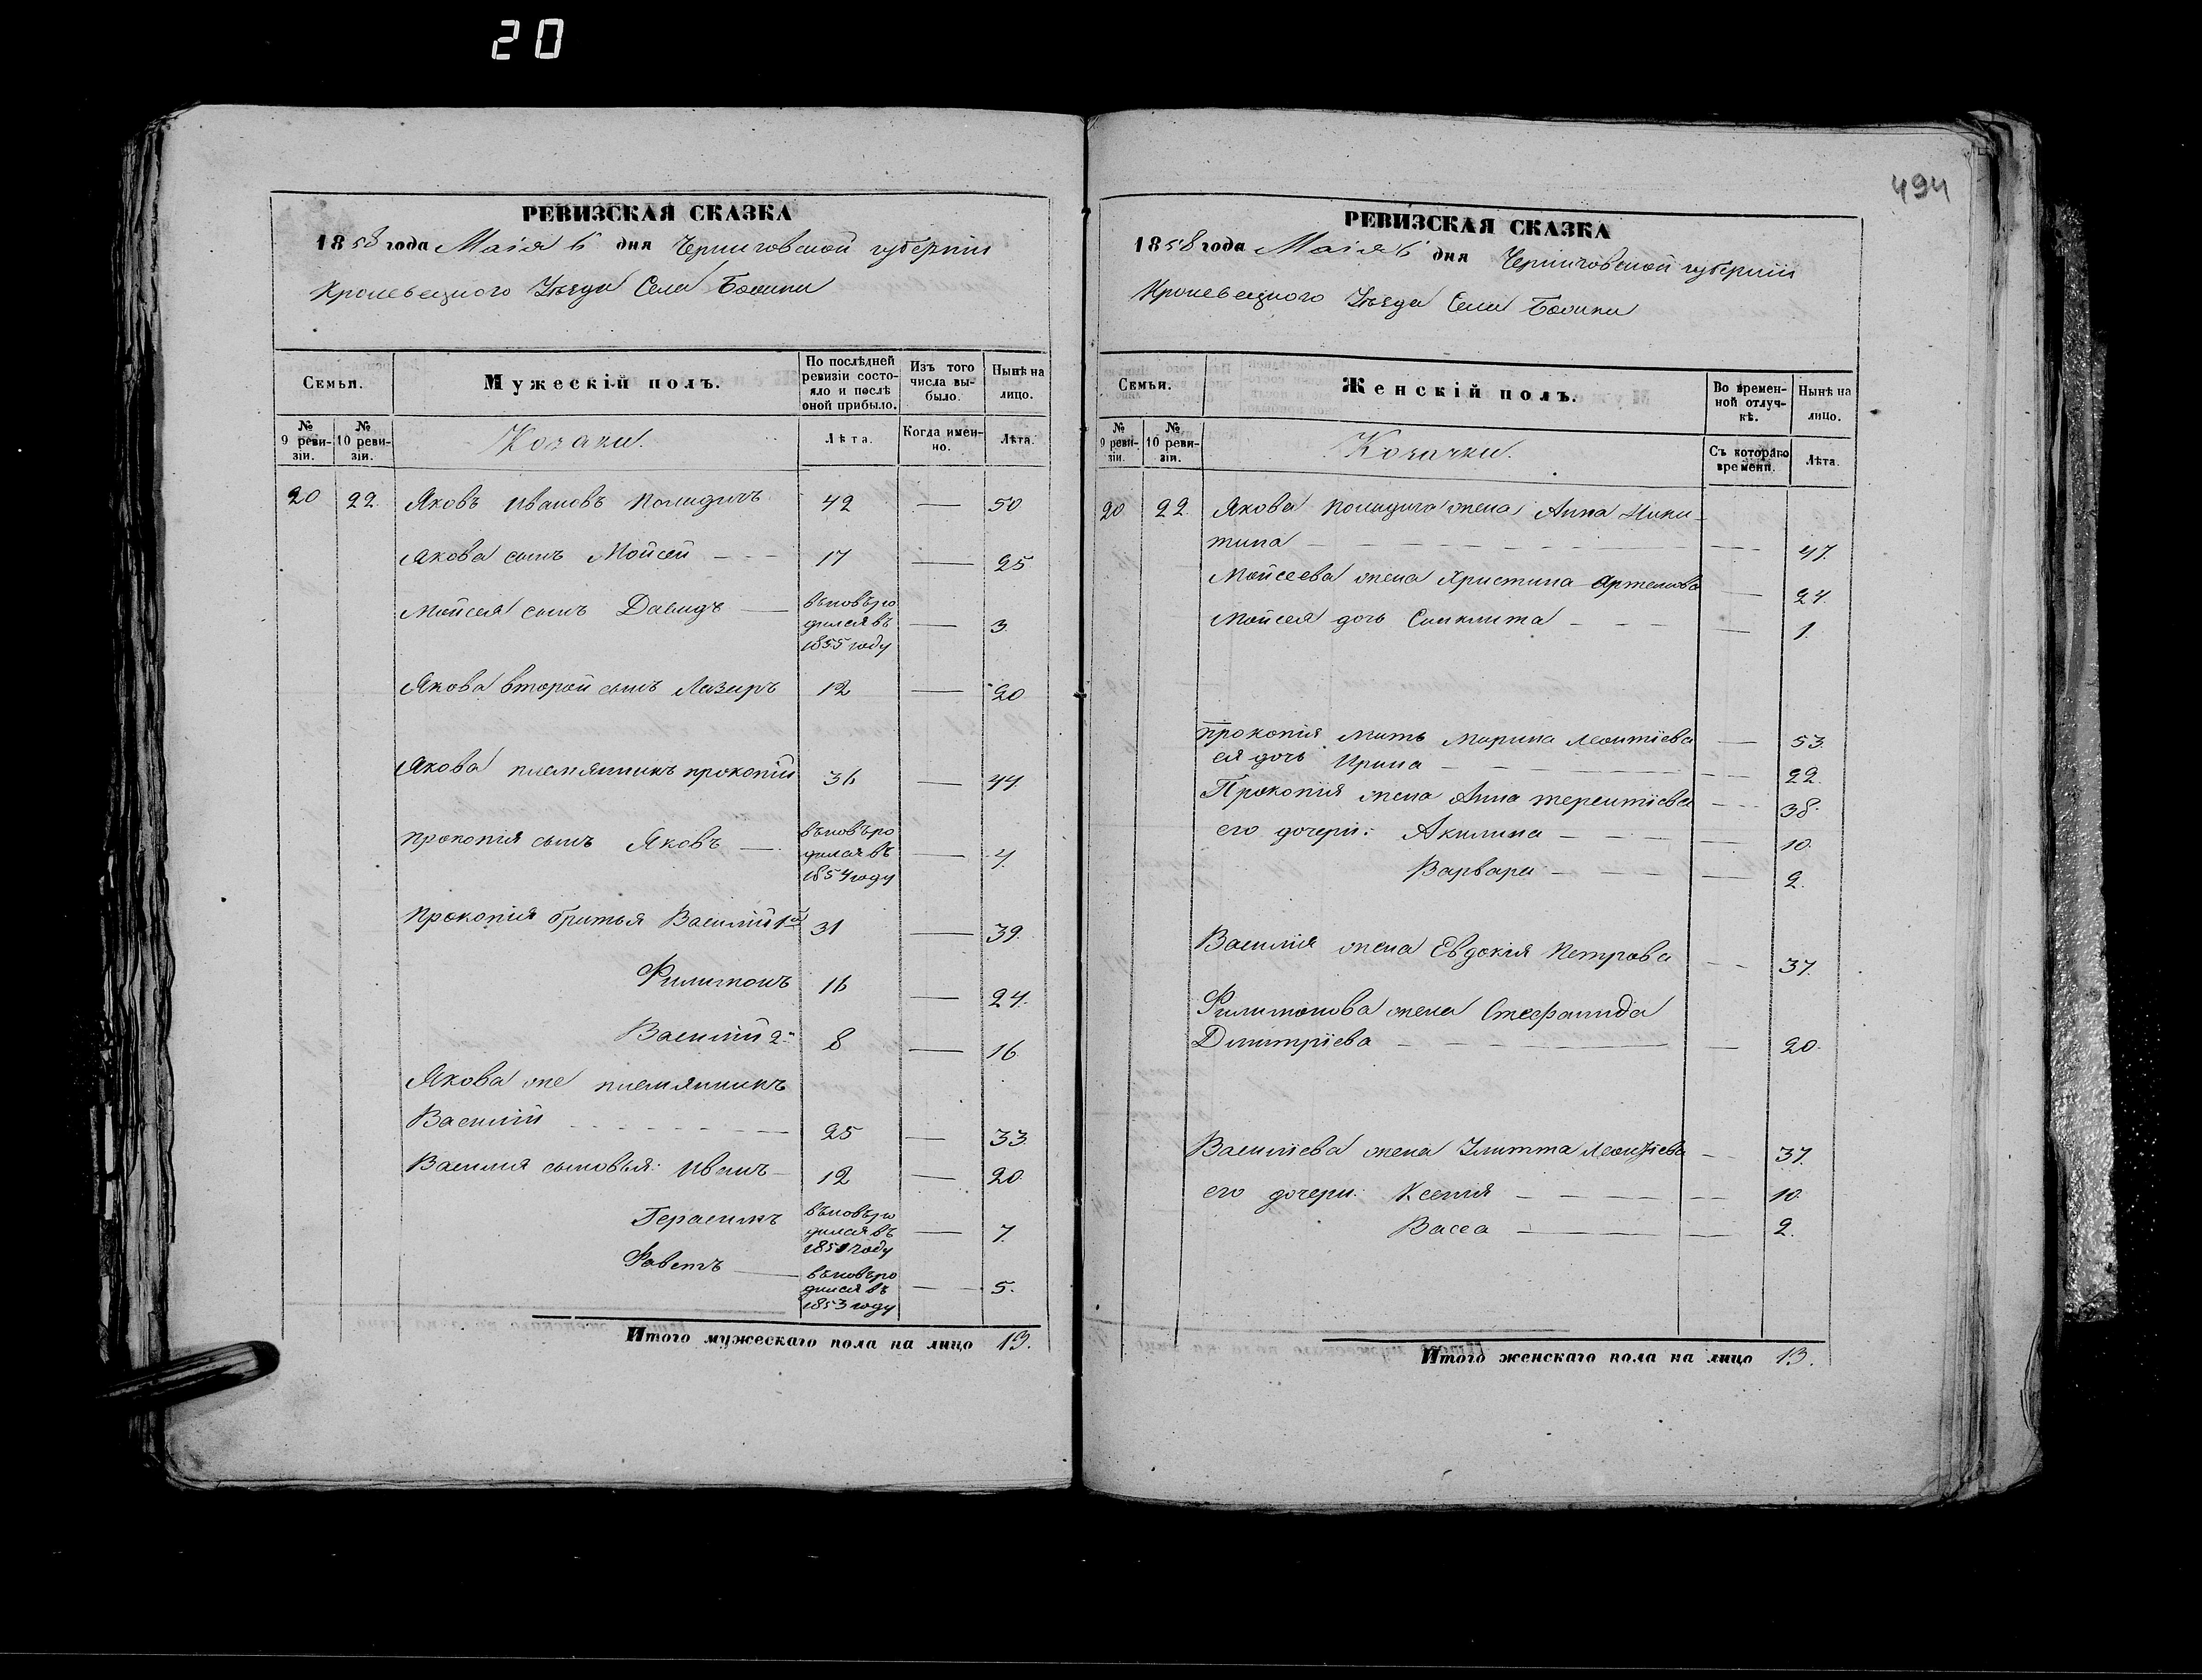 20
494
РЕВИЗСКАЯ СКАЗКА
1858 года Маія 6 дня Черниговской губерніи
Кролевецкого Уѣзда Села
Семьи.
Мужескій полъ.
По послѣдней ревизіи состояло и послѣ оной прибыло.
Изъ того числа выбыло.
Нынѣ на лицо.
№ 9 ревизіи.
№ 10 ревизіи.
Козаки.
Лѣта.
Когда именно.
Лѣта.
20 22 Яковъ Ивановъ 42 — 50
Якова сынъ Мойсей — 17 — 25
Мойсея сынъ Давидъ — вновь ро
дился въ — 3.
1855 году
Якова второй сынъ Лазарь 12 — 20
Якова племянникъ прокопій 36 — 44.
Прокопія сынъ Яковъ — вновь ро
дился въ — 4.
1854 году
Прокопія братья Василій 1й 31 — 39.
Филимонъ 16 — 24.
Василій 2й 8 — 16
Якова же племянникъ
Василій — 25 — 33.
Василія сыновья: Иванъ — 12 — 20.
Герасимъ вновь ро
дился въ — 7.
1851 году
вновь ро
дился въ — 5.
1853 году
Итого мужескаго пола на лицо 13.
РЕВИЗСКАЯ СКАЗКА
1858 года Маія 6 дня Черниговской губерніи
Кролевецкого Уѣзда Села
Семьи.
Женскій полъ.
Во временной отлучкѣ.
Нынѣ на лицо.
№ 9 ревизіи.
№ 10 ревизіи.
Козачки.
Съ котораго времени.
Лѣта.
20 22. Якова жена Анна Ники-
тина — — 47.
Мойсеева жена Христина Артемова — 24.
Мойсея дочь Синклита — — 1.
Прокопія мать Марина Леонтіева — 53.
ея дочь Ирина — — 22.
Прокопія жена Анна терентіева — 38.
его дочери: Акилина — — 10.
Варвара — — 2.
Василія жена Евдокія Петрова — 37.
Филимонова жена
Димитріева — — 20.
Василіева жена Улитта Леонтіева — 37.
его дочери: Ксенія — — 10.
Васса — — 2.
Итого женскаго пола на лицо 13.